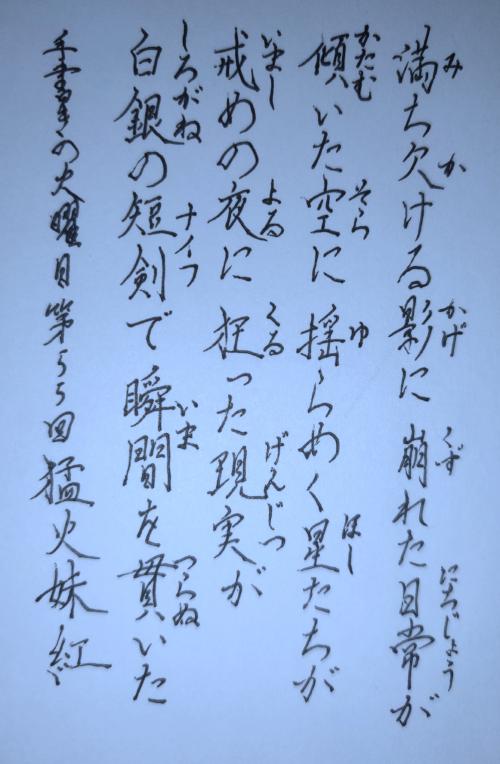 満ち欠ける影に 崩れた日常が
み か かげ くず にちじょう
傾いた空に 揺らめく星たちが
かたむ そら ゆ ほし
戒めの夜に 狂った現実が
いまし よる くる げんじつ
白銀の短剣で 瞬間を貫いた
しろがね ナイフ いま つらぬ
手書きの火曜日第55回猛火妹紅